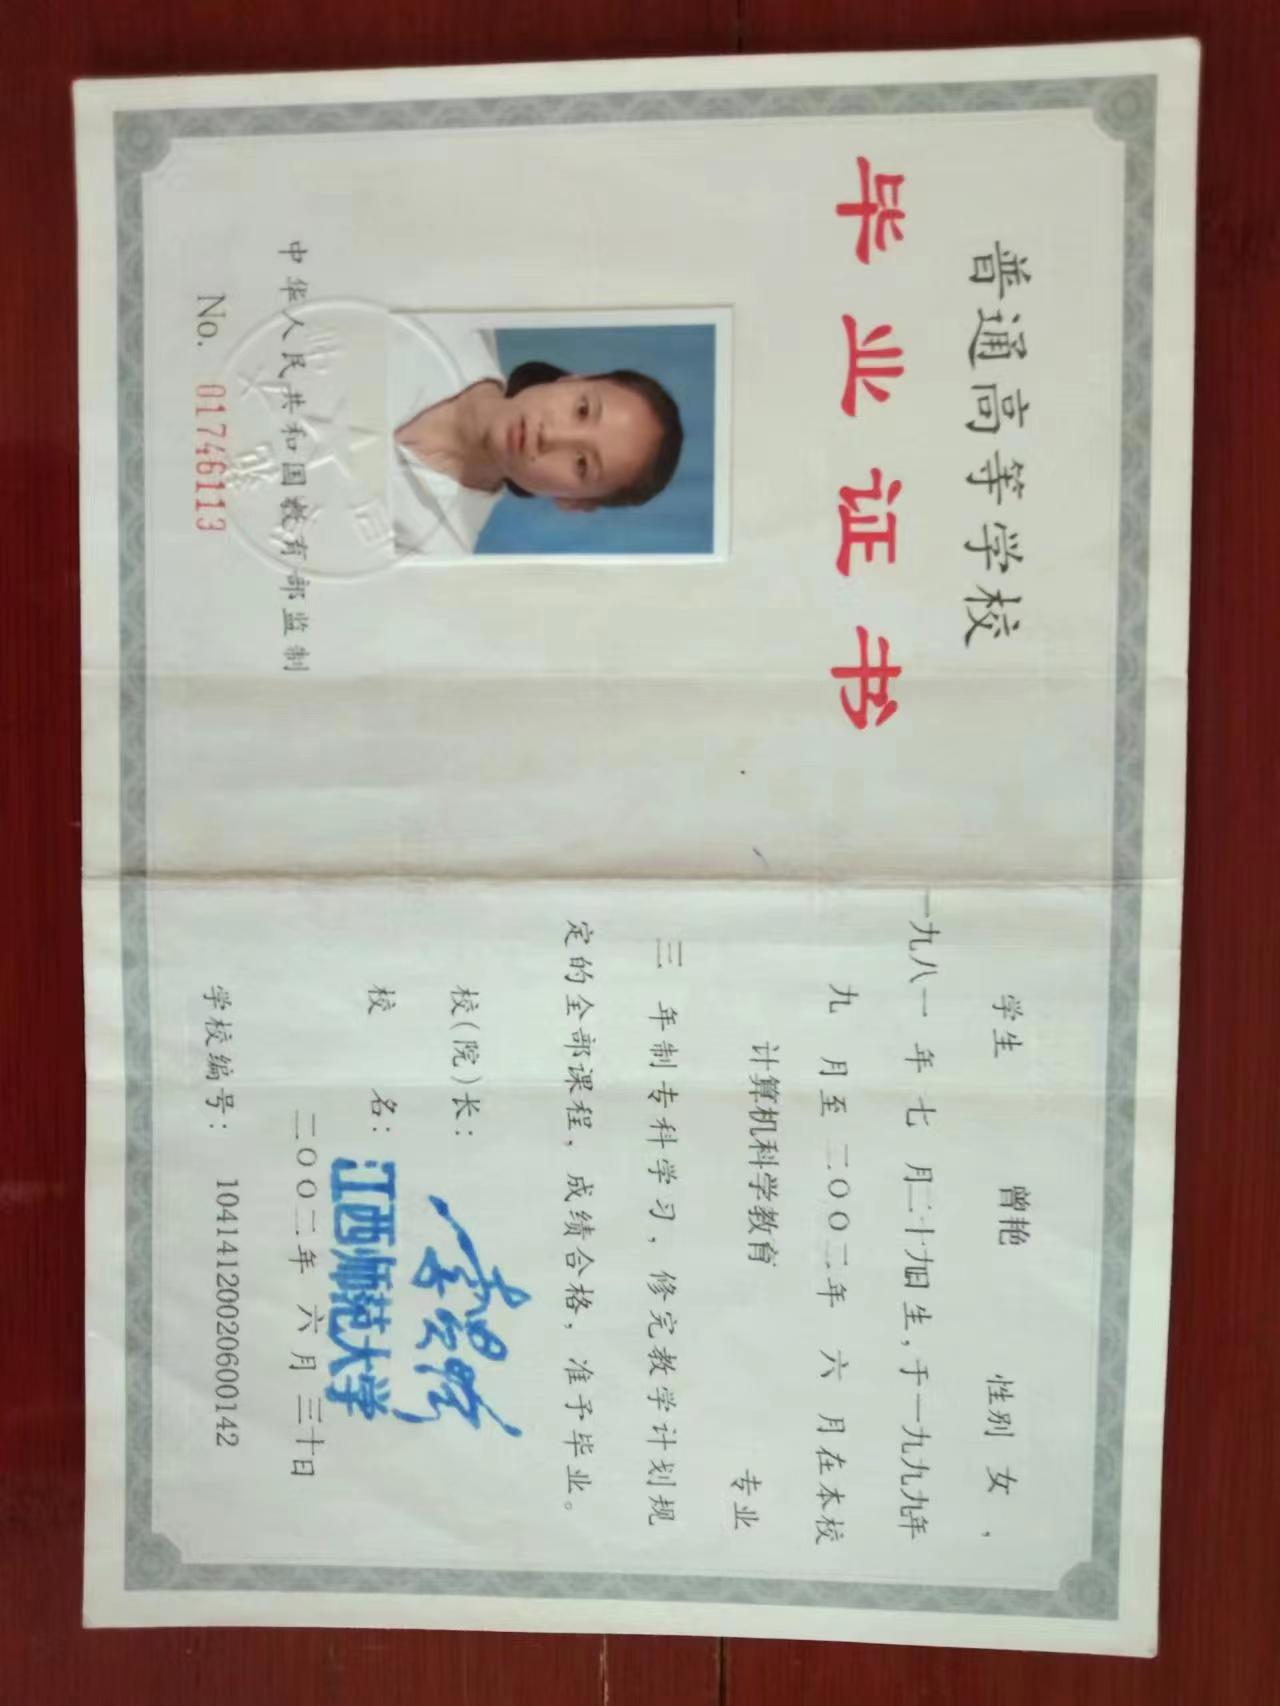 普通高等学校
毕业证书
中华人民共和国教育部监制
No. 01746113
学生 曾艳 性别 女，
一九八一 年 七 月二十九日生，于一九九九年
九 月至 二〇〇二年 六 月在本校
计算机科学教育 专业
三 年制专科学习，修完教学计划规
定的全部课程，成绩合格，准予毕业。
校（院）长：
校 名： 江西师范大学
二〇〇二年 六月 三十日
学校编号： 104141200206001​42